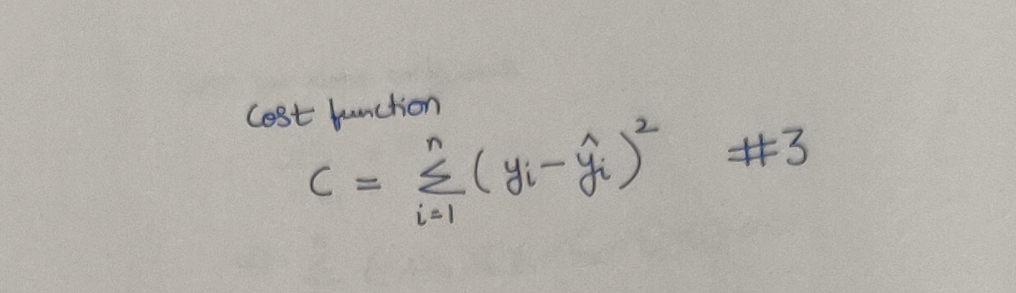 Cost function
C = n∑i=1 (yi - ŷi)² #3